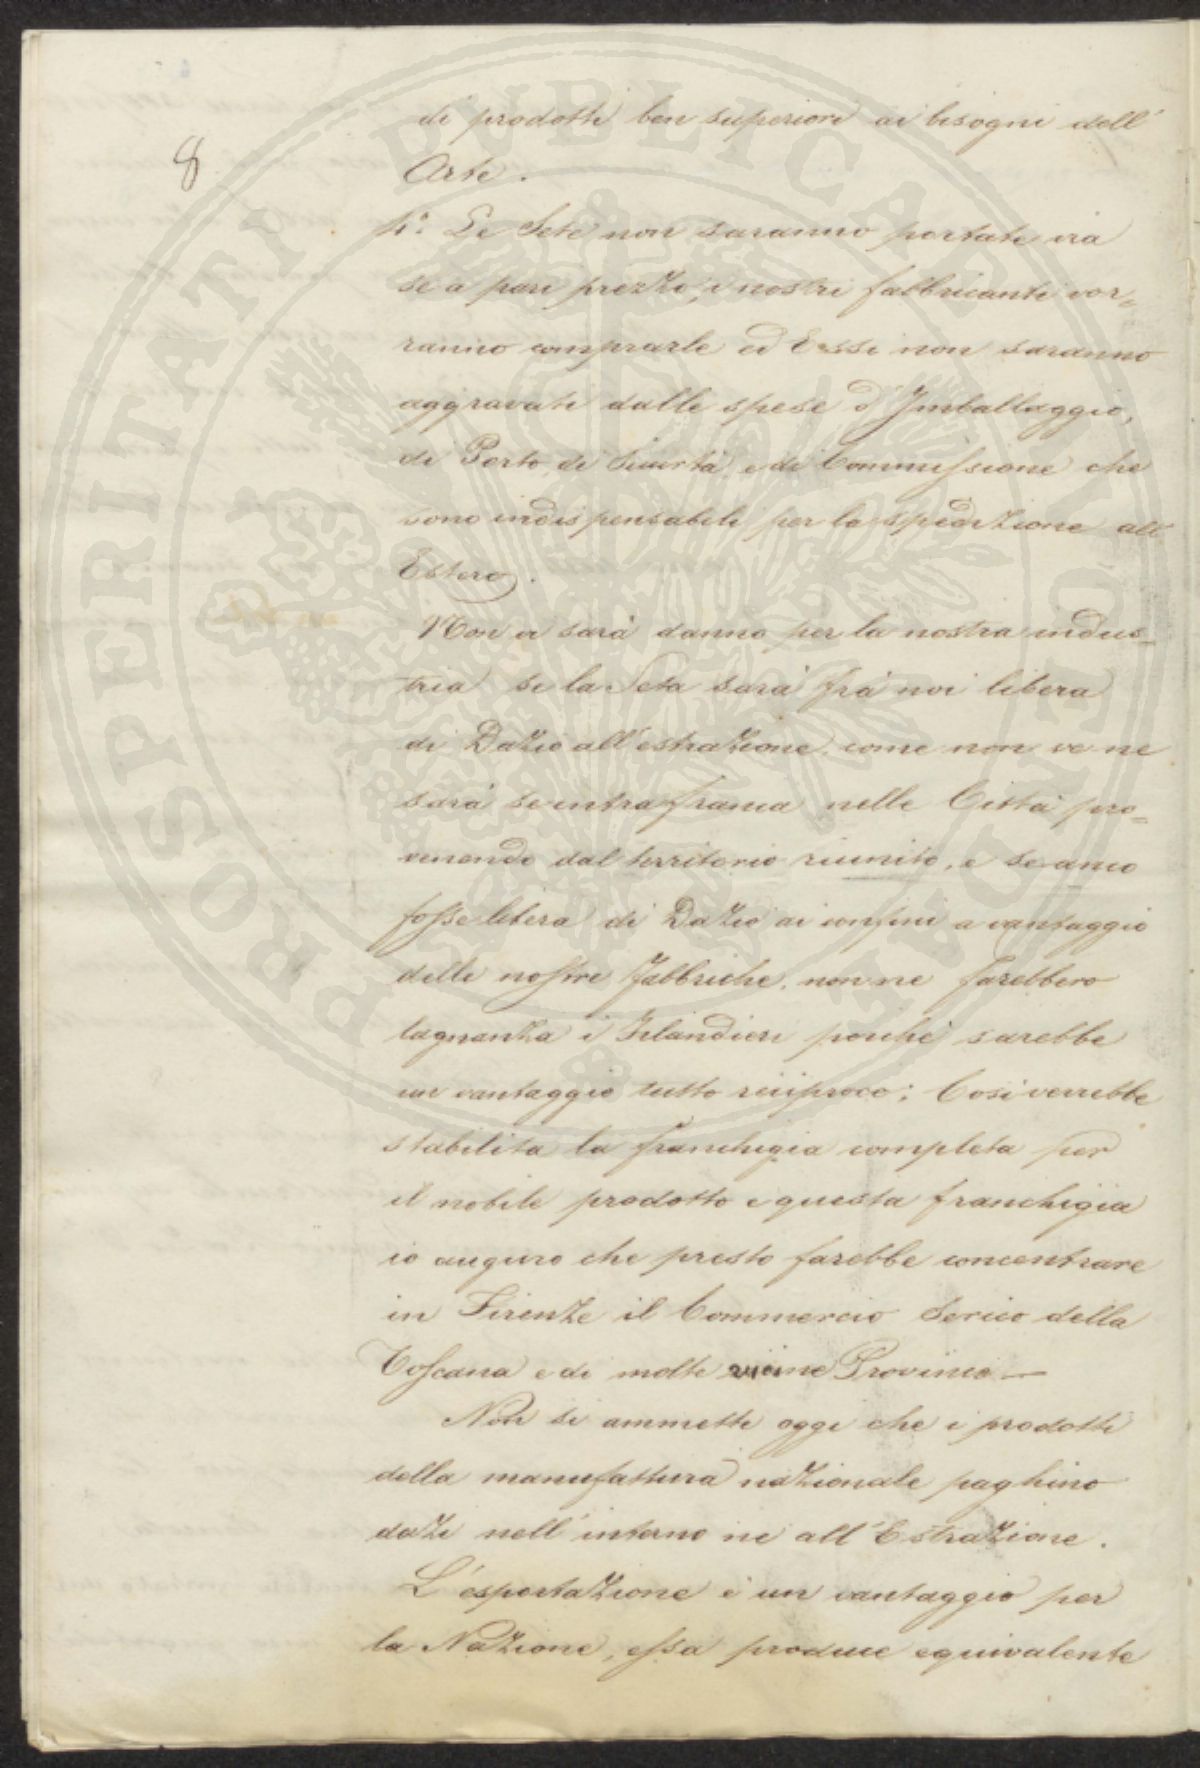 8
di prodotti ben superiori ai bisogni dell'
Arte.
p.º Le Sete non saranno portate via
se a pari prezzo, i nostri fabbricanti vor=
ranno comprarle ed Essi non saranno
aggravati dalle spese d'Imballaggio,
di Porto, di Sicurtà, e di Commissione che
sono indispensabili per la spedizione all'
Estero.
Non vi sarà danno per la nostra indus=
tria se la Seta sarà frà noi libera
di Dazio all'estrazione, come non ve ne
sarà se entra franca nelle Città pro=
venendo dal territorio riunito, e se anco
fosse libera di Dazio ai confini a vantaggio
delle nostre fabbriche, non ne farebbero
lagnanza i Filandieri poichè sarebbe
un vantaggio tutto reciproco; Così verrebbe
stabilita la franchigia completa per
il nobile prodotto e questa franchigia
io auguro che presto farebbe concentrare
in Firenze il Commercio Serico della
Toscana e di molte vicine Provincie —
Non si ammette oggi che i prodotti
della manufattura nazionale paghino
dazi nell'interno nè all'Estrazione.
L'esportazione è un vantaggio per
la Nazione, essa produce equivalente
PROSPERITATI PUBLICAE PROVEHENDAE